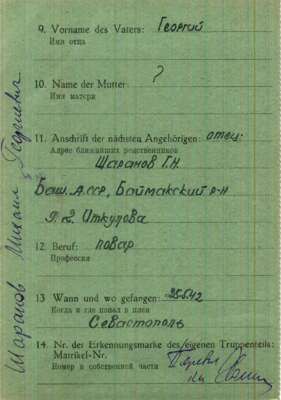 9. Vorname des Vaters: Георгий
Имя отца
10. Name der Mutter: ?
Имя матери
11. Anschrift der nächsten Angehörigen: отец:
Адрес ближайших родственников
Шаранов Г.Н.
Баш. АССР, Баймакский р-н
Иткулова
12. Beruf: повар
Профессия
13 Wann und wo gefangen: 25.6.42
Когда и где попал в плен
Севастополь
14. Nr. der Erkennungsmarke des/eigenen Truppenteils:
Matrikel-Nr.
Номер в собственной части
Шаранов Михаил Георгиевич